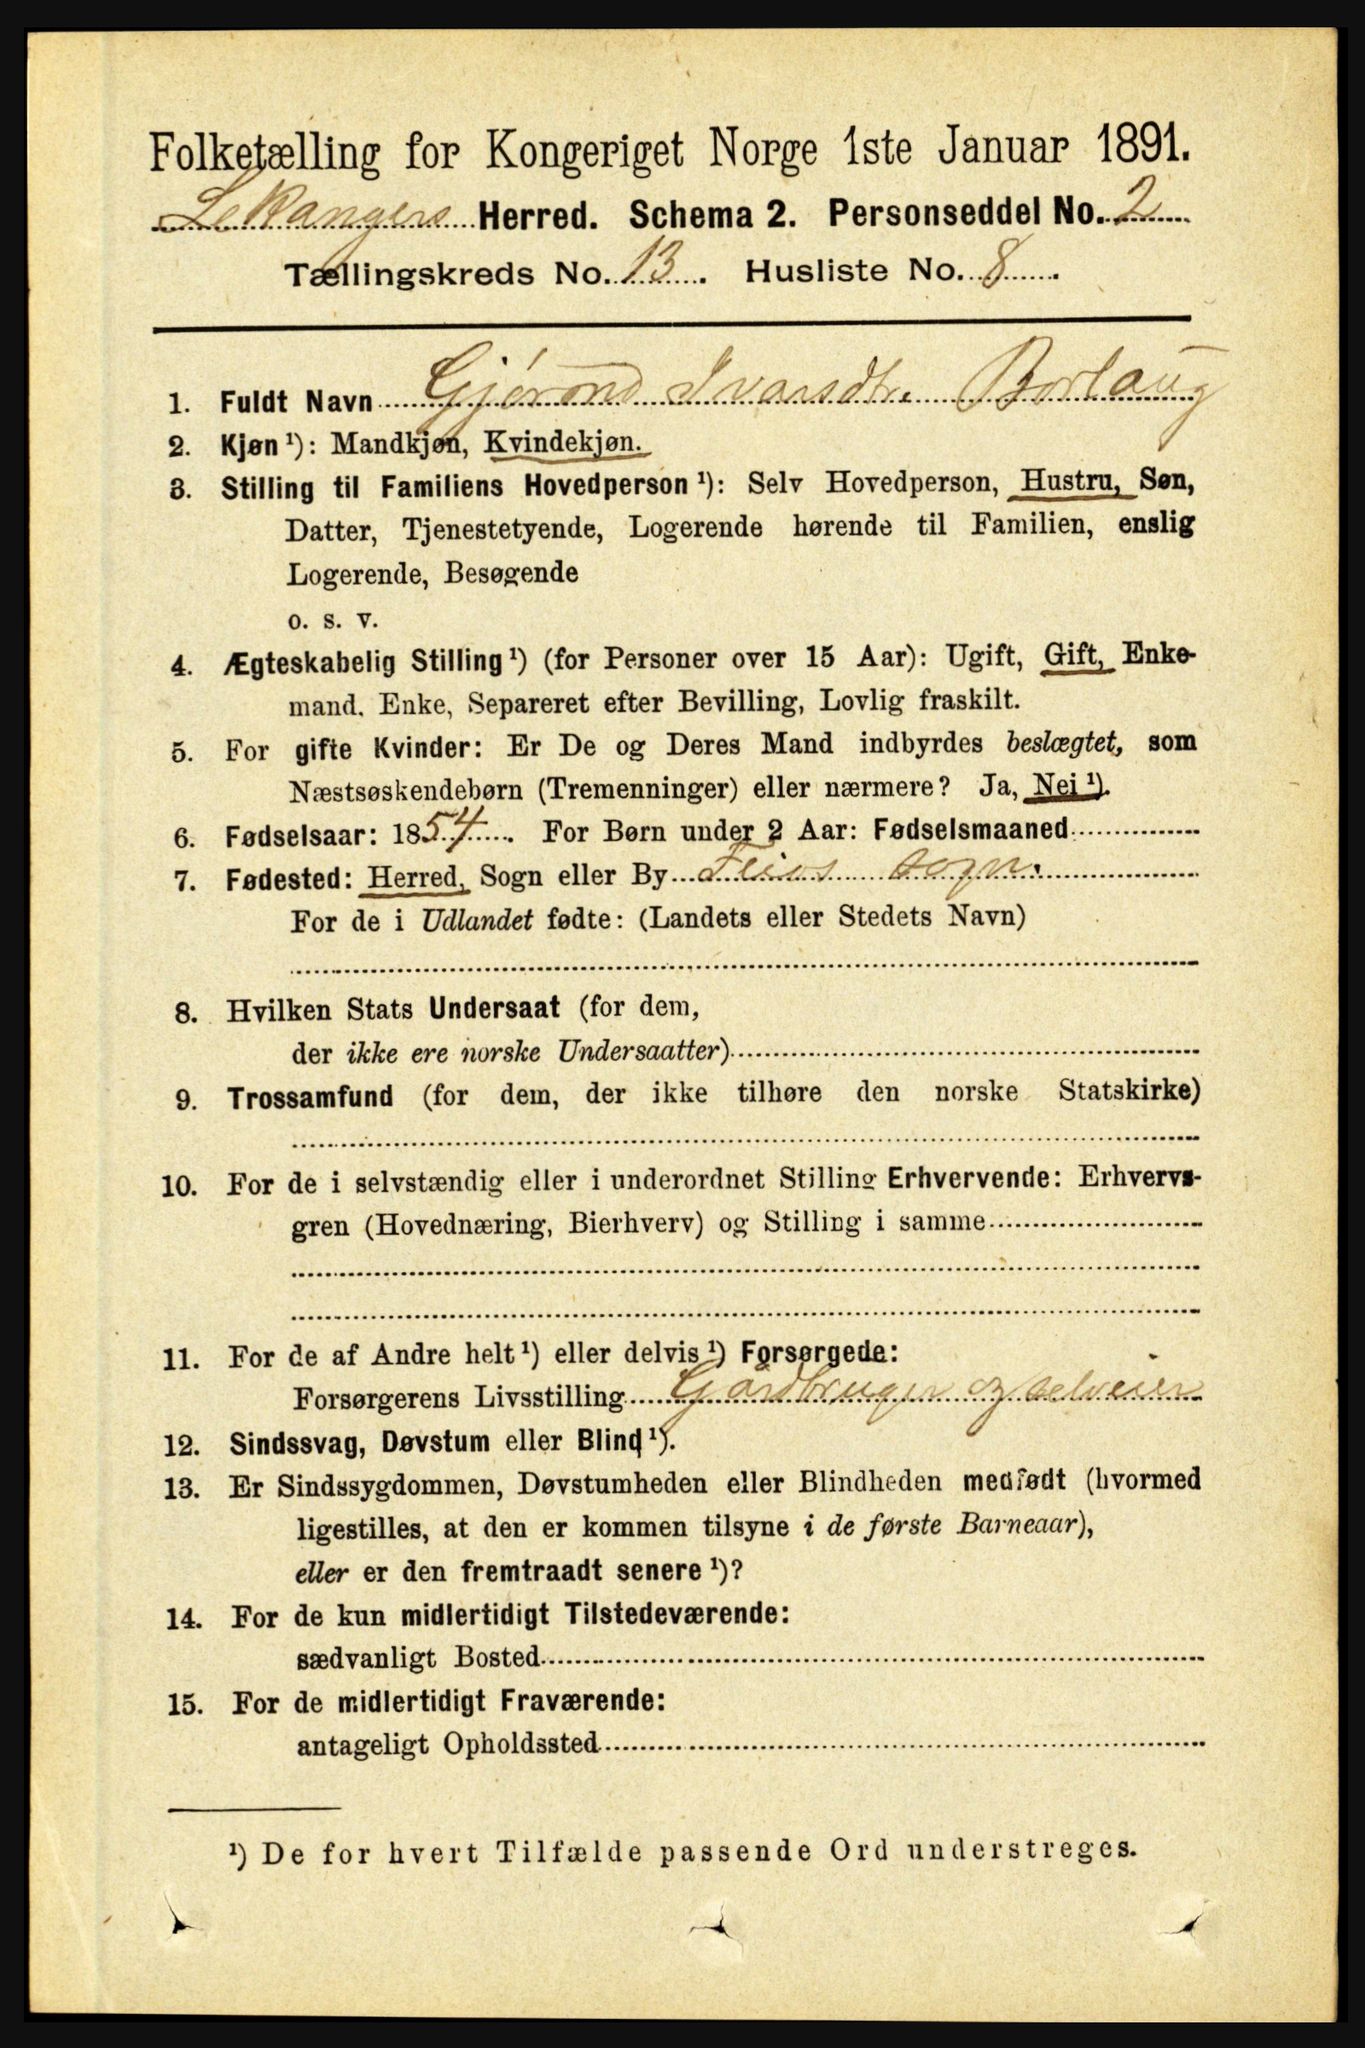 Folketælling for Kongeriget Norge 1ste Januar 1891.
Lekangers Herred. Schema 2. Personseddel No. 2
Tællingskreds No. 13. Husliste No. 8.
1. Fuldt Navn Gjørond Ivarsdtr. Borlaug
2. Kjøn ¹): Mandkjøn, Kvindekjøn.
3. Stilling til Familiens Hovedperson ¹): Selv Hovedperson, Hustru, Søn,
Datter, Tjenestetyende, Logerende hørende til Familien, enslig
Logerende, Besøgende
o. s. v.
4. Ægteskabelig Stilling ¹) (for Personer over 15 Aar): Ugift, Gift, Enke-
mand. Enke, Separeret efter Bevilling, Lovlig fraskilt.
5. For gifte Kvinder: Er De og Deres Mand indbyrdes beslægtet, som
Næstsøskendebørn (Tremenninger) eller nærmere? Ja, Nei ¹).
6. Fødselsaar: 1854. For Børn under 2 Aar: Fødselsmaaned
7. Fødested: Herred, Sogn eller By Feios sogn.
For de i Udlandet fødte: (Landets eller Stedets Navn)
8. Hvilken Stats Undersaat (for dem,
der ikke ere norske Undersaatter)
9. Trossamfund (for dem, der ikke tilhøre den norske Statskirke)
10. For de i selvstændig eller i underordnet Stilling Erhvervende: Erhvervs-
gren (Hovednæring, Bierhverv) og Stilling i samme
11. For de af Andre helt ¹) eller delvis ¹) Forsørgede:
Forsørgerens Livsstilling Gårdbruger og selveier
12. Sindssvag, Døvstum eller Blind ¹).
13. Er Sindssygdommen, Døvstumheden eller Blindheden medfødt (hvormed
ligestilles, at den er kommen tilsyne i de første Barneaar),
eller er den fremtraadt senere ¹)?
14. For de kun midlertidigt Tilstedeværende:
sædvanligt Bosted
15. For de midlertidigt Fraværende:
antageligt Opholdssted
¹) De for hvert Tilfælde passende Ord understreges.